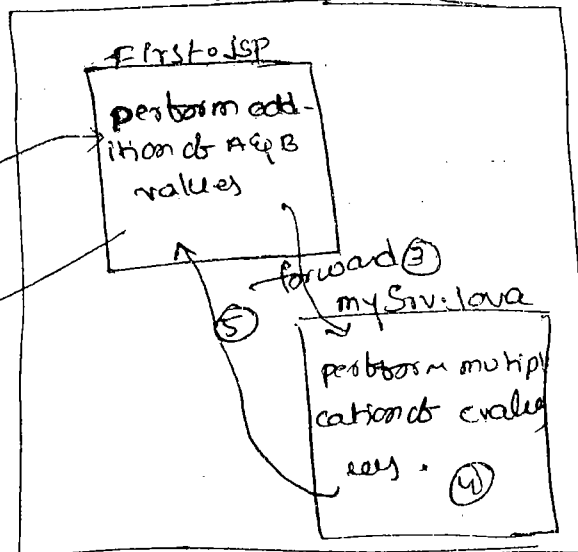 First.jsp
perform add-
ition of A & B
values
forward ③
⑤
mySrv.java
perform mutipl
cation of c value
④